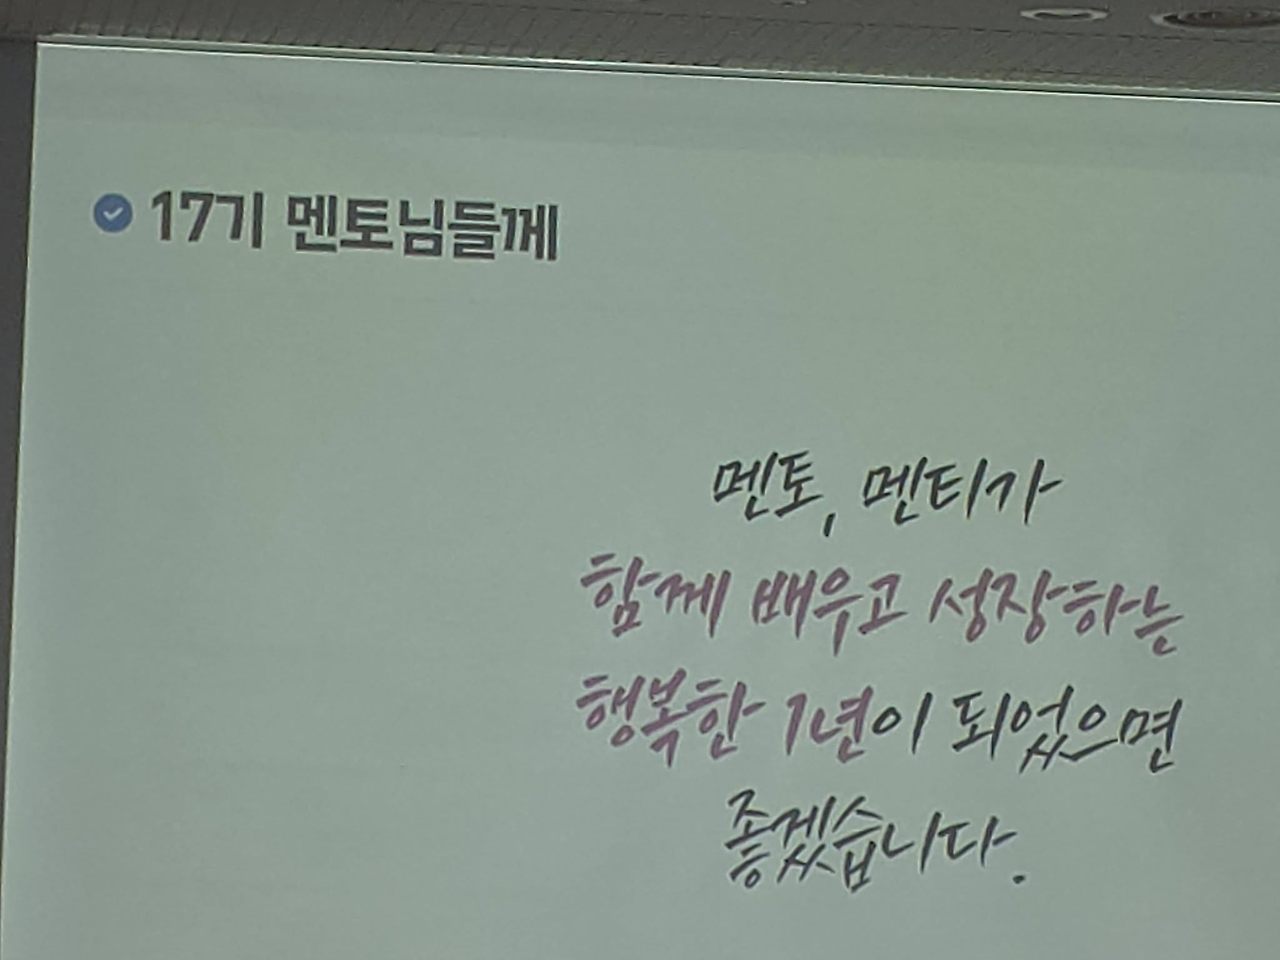 17기 멘토님들께
멘토, 멘티가
함께 배우고 성장하는
행복한 1년이 되었으면
좋겠습니다.